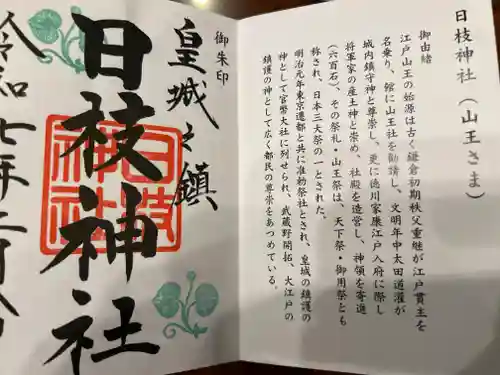 日枝神社(山王さま)
御由緒
江戸山王の始源は古く鎌倉初期秩父重継が江戸貫主を
名乗り、館に山王社を勧請し、文明年中太田道灌が
城内鎮守神と尊崇し、更に徳川家康江戸入府に際し
将軍家の産土神と崇め、社殿を造営し、神領を寄進
(六百石)、その祭礼・山王祭は、天下祭・御用祭とも
称され、日本三大祭の一とされた。
明治元年東京遷都と共に准勅祭社とされ、皇城の鎮護の
神として官幣大社に列せられ、武蔵野開拓、大江戸の
鎮護の神として広く都民の尊崇をあつめている。
御朱印
皇城之鎮
日枝神社
日枝神社
令和七年二月